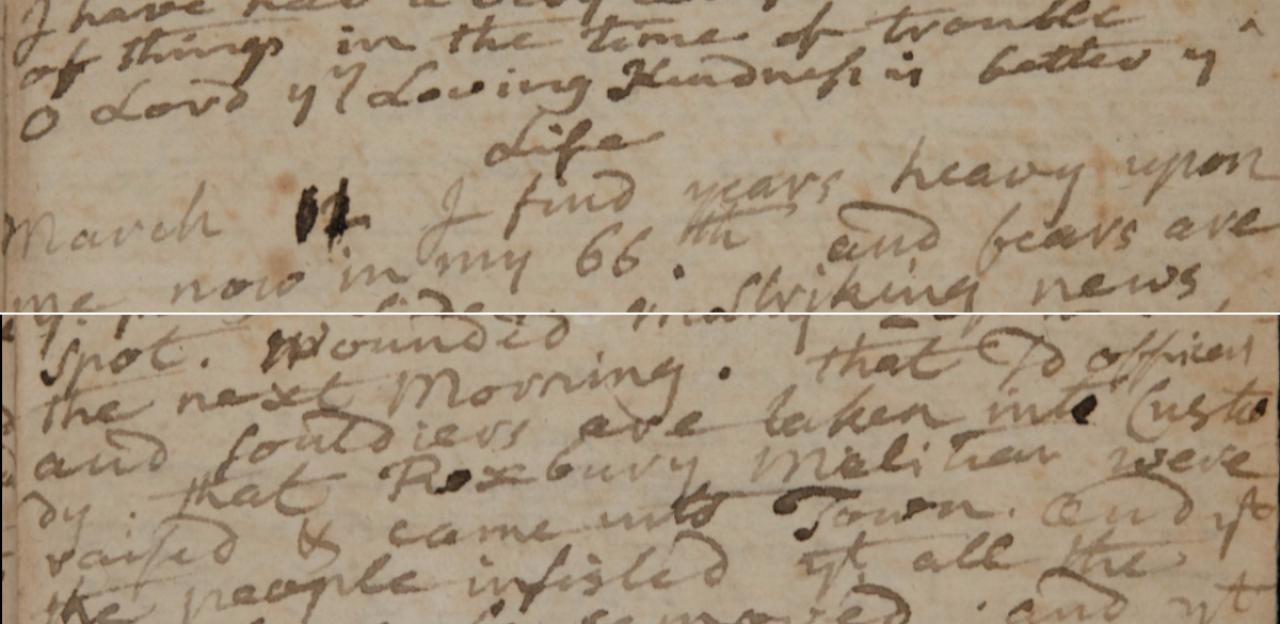 I have had a
of things in the time of trouble
O Lord yʳ Loving Kindness is better yⁿ
Life
March 12 I find years heavy upon
me now in my 66.th and fears are
many Striking news
Spot. Wounded
the next Morning. that sd officers
and souldiers are taken into Custo
dy. that Roxbury Melitiar were
raised & came into Town. and yt
the people insisted yt all the
removed. and yt